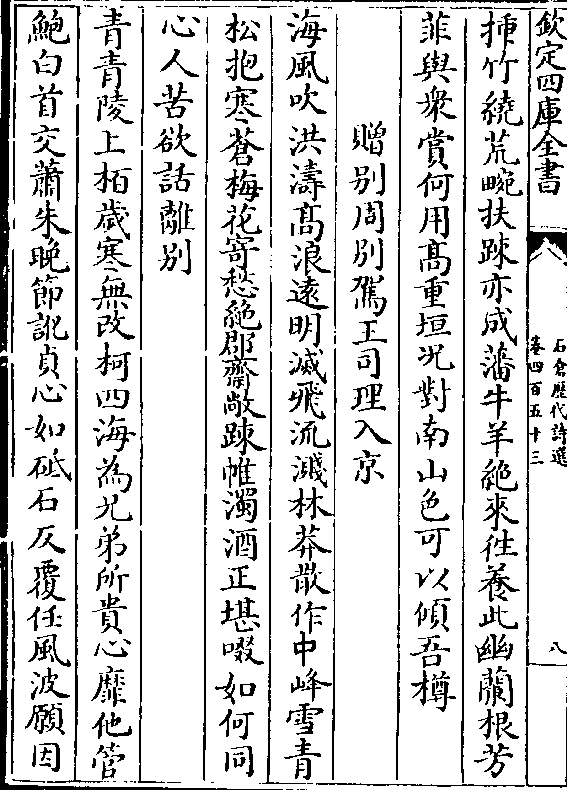 欽定四庫全書
石倉歴代詩選
卷四百五十三
八
揷竹繞荒畹扶踈亦成藩牛羊絶來徃養此幽蘭根芳
菲與衆賞何用髙重垣况對南山色可以傾吾樽
贈别周别駕王司理入京
海風吹洪濤髙浪遠明滅飛流濺林莽散作中峰雪青
松抱寒蒼梅花寄愁絶郡齋敞踈帷濁酒正堪啜如何同
心人苦欲話離别
青青陵上栢歲寒無改柯四海為兄弟所貴心靡他管
鮑白首交蕭朱晚節訛貞心如砥石反覆任風波願因